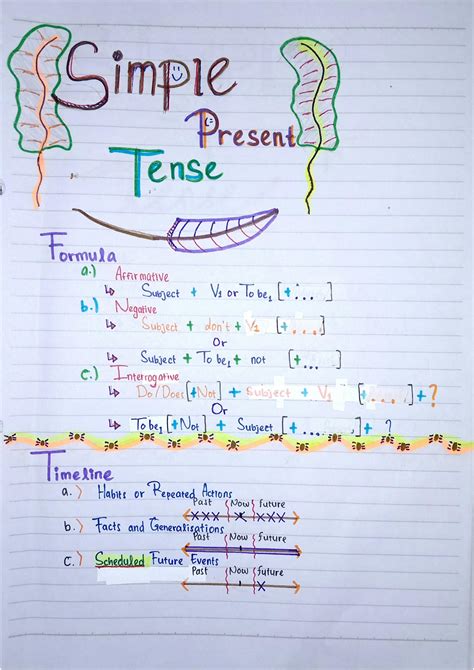 Simple
Present
Tense
Formula
a.) Affirmative
↳ Subject + V1 or To be1 [+ ... ]
b.) Negative
↳ Subject + don't + V1 [+ ....]
Or
↳ Subject + To be1 + not [+ ... ]
c.) Interrogative
↳ Do/Does [+Not] + Subject + V1 [+ ... ,] + ?
Or
↳ To be1 [+Not] + Subject [+ ... ,] + ?
Timeline
a.) Habits or Repeated Actions
Past Now future
XXX X XXX
b.) Facts and Generalisations
Past Now future
c.) Scheduled Future Events
Past Now future
X